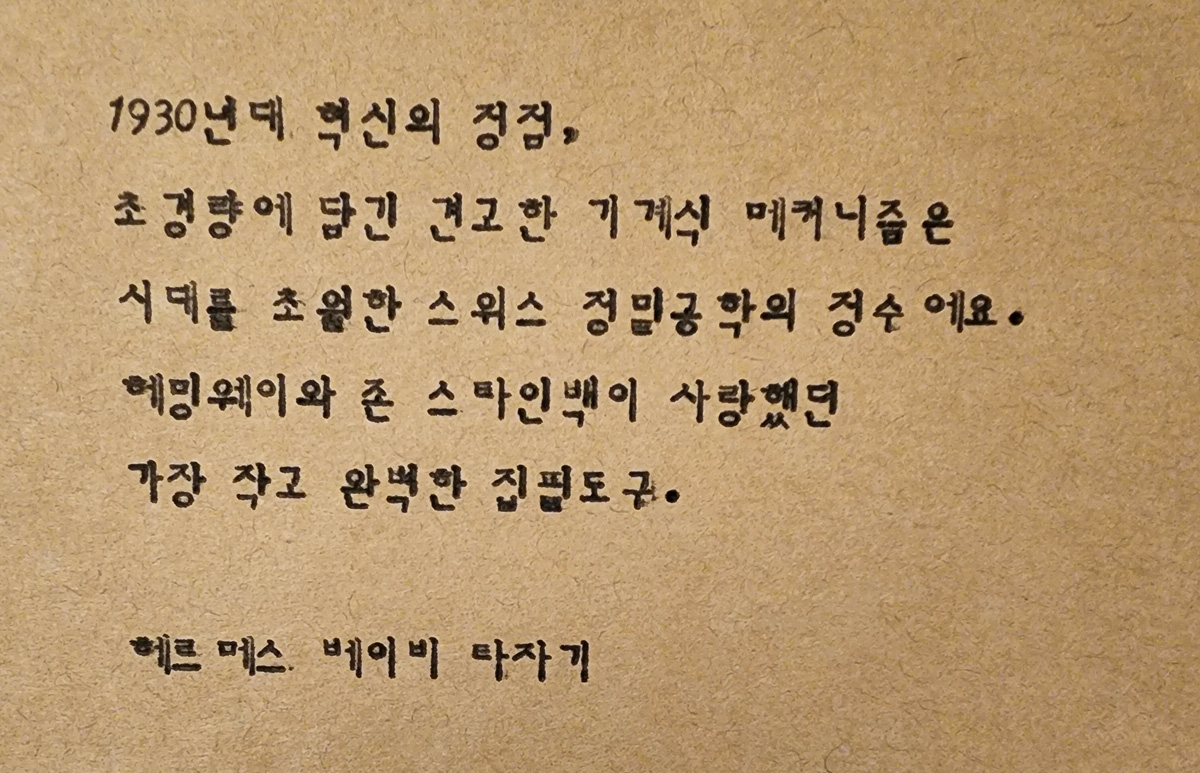 1930년대 혁신의 정점,
초경량에 담긴 견고한 기계식 메커니즘은
시대를 초월한 스위스 정밀공학의 정수에요.
헤밍웨이와 존 스타인백이 사랑했던
가장 작고 완벽한 집필도구.
헤르메스 베이비 타자기